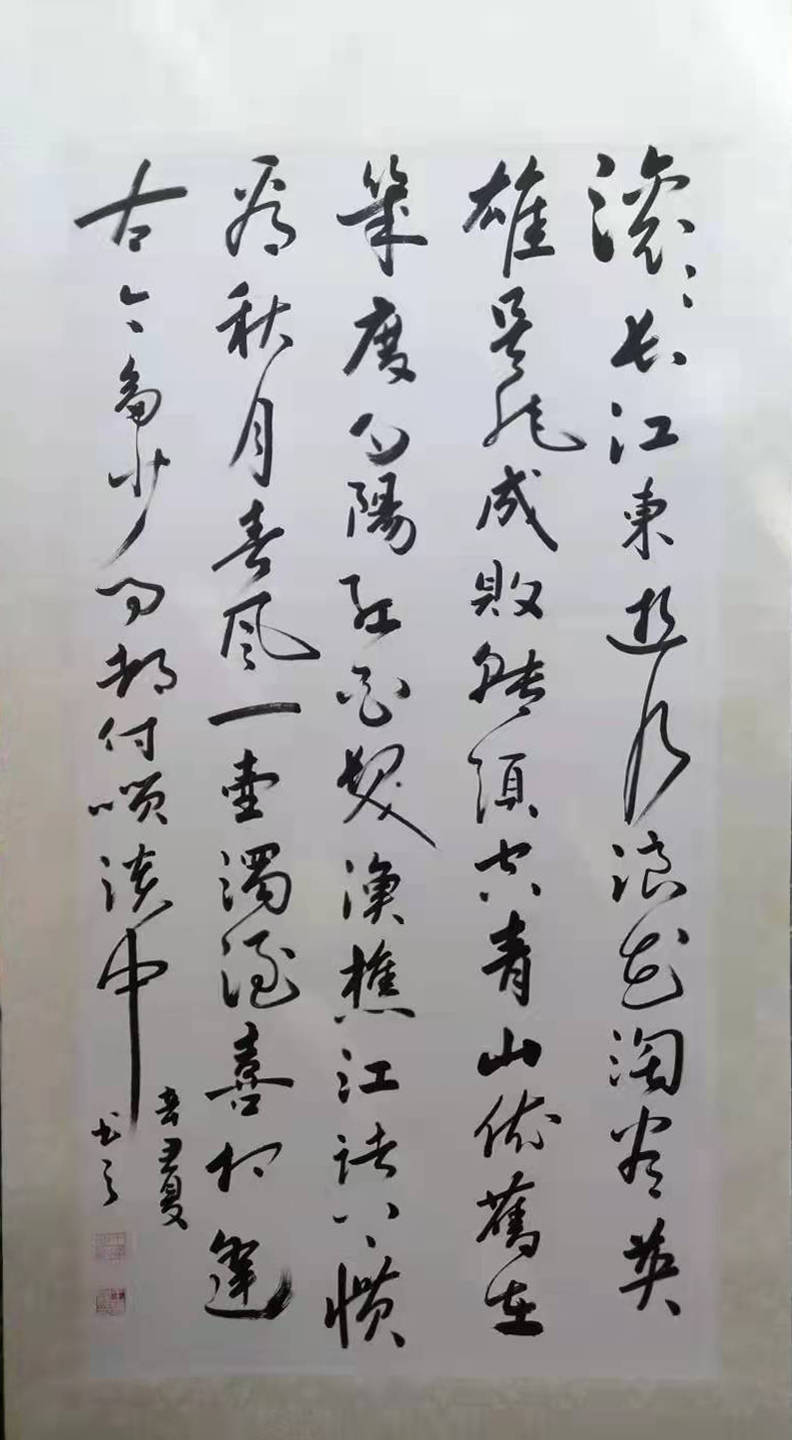 滚滚长江東逝水浪花淘尽英
雄是非成敗转頭空青山依舊在
幾度夕陽红白髮渔樵江渚上惯
看秋月春风一壶濁酒喜相逢
古今多少事都付咲谈中
辛丑夏
书之